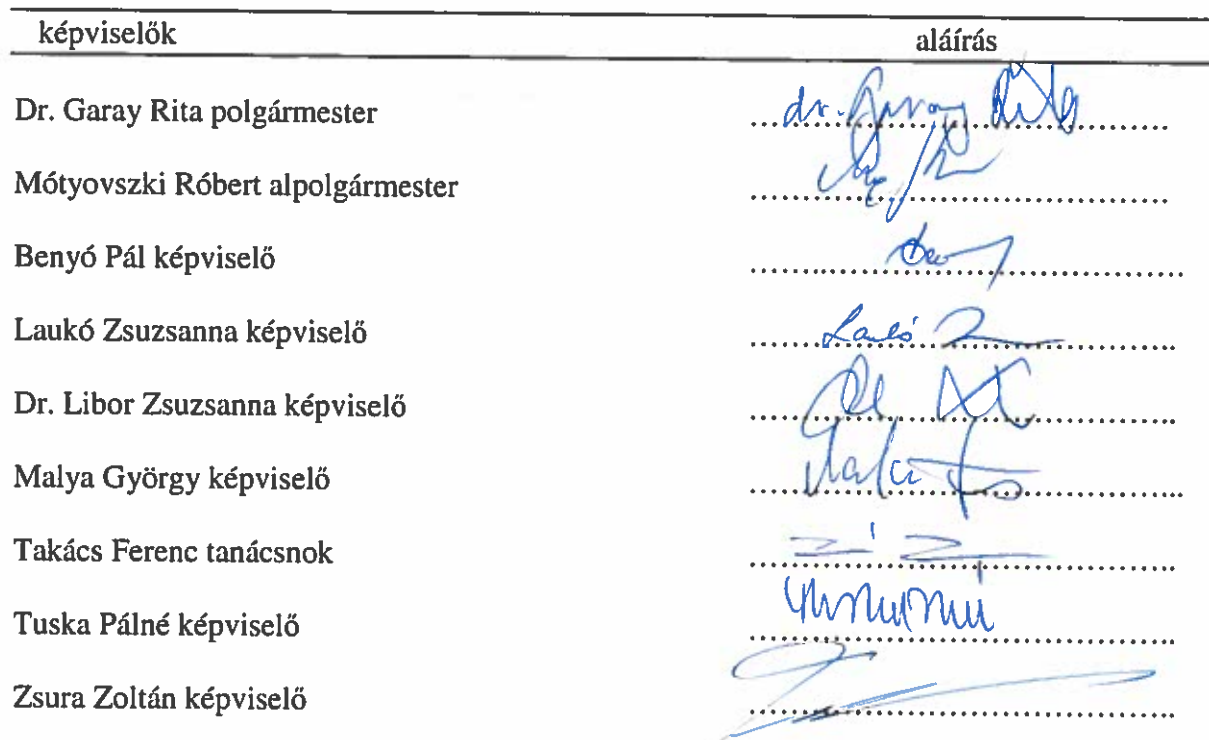 képviselők aláírás
Dr. Garay Rita polgármester dr. Garay Rita
Mótyovszki Róbert alpolgármester
Benyó Pál képviselő
Laukó Zsuzsanna képviselő Laukó
Dr. Libor Zsuzsanna képviselő
Malya György képviselő
Takács Ferenc tanácsnok
Tuska Pálné képviselő
Zsura Zoltán képviselő